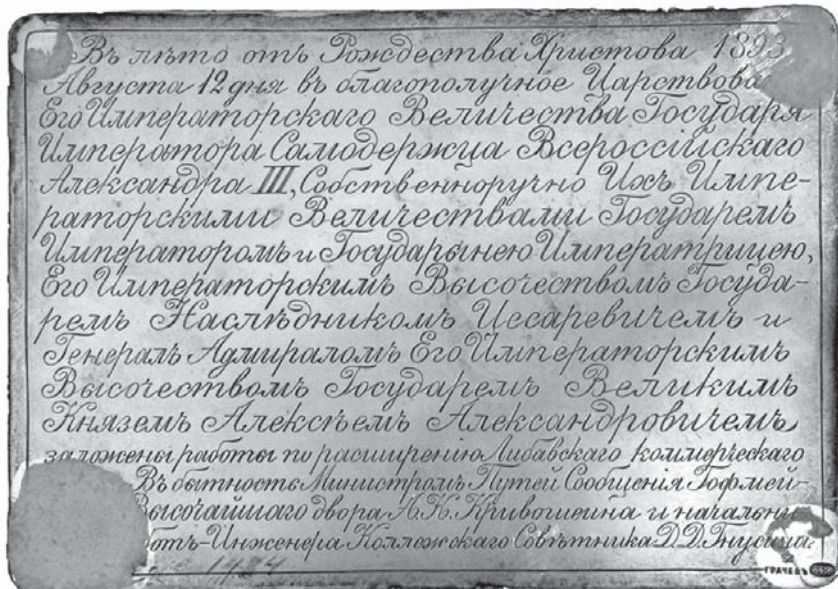 Въ лѣто отъ Рождества Христова 1893
Августа 12 дня въ благополучное Царствова
Его Императорскаго Величества Государя
Императора Самодержца Всероссійскаго
Александра III, Собственноручно Ихъ Импе-
раторскими Величествами Государемъ
Императоромъ и Государынею Императрицею,
Его Императорскимъ Высочествомъ Госуда-
ремъ Наслѣдникомъ Цесаревичемъ и
Генералъ Адмираломъ Его Императорскимъ
Высочествомъ Государемъ Великимъ
Княземъ Алексѣемъ Александровичемъ
заложены работы по расширенію Либавскаго коммерческаго
Въ бытность Министромъ Путей Сообщенія Гофмей-
Высочайшаго двора А.К. Кривошеина и начальни
ботъ-Инженера Коллежскаго Совѣтника Д.Д. Гнусина.
ГРАЧЕВЪ